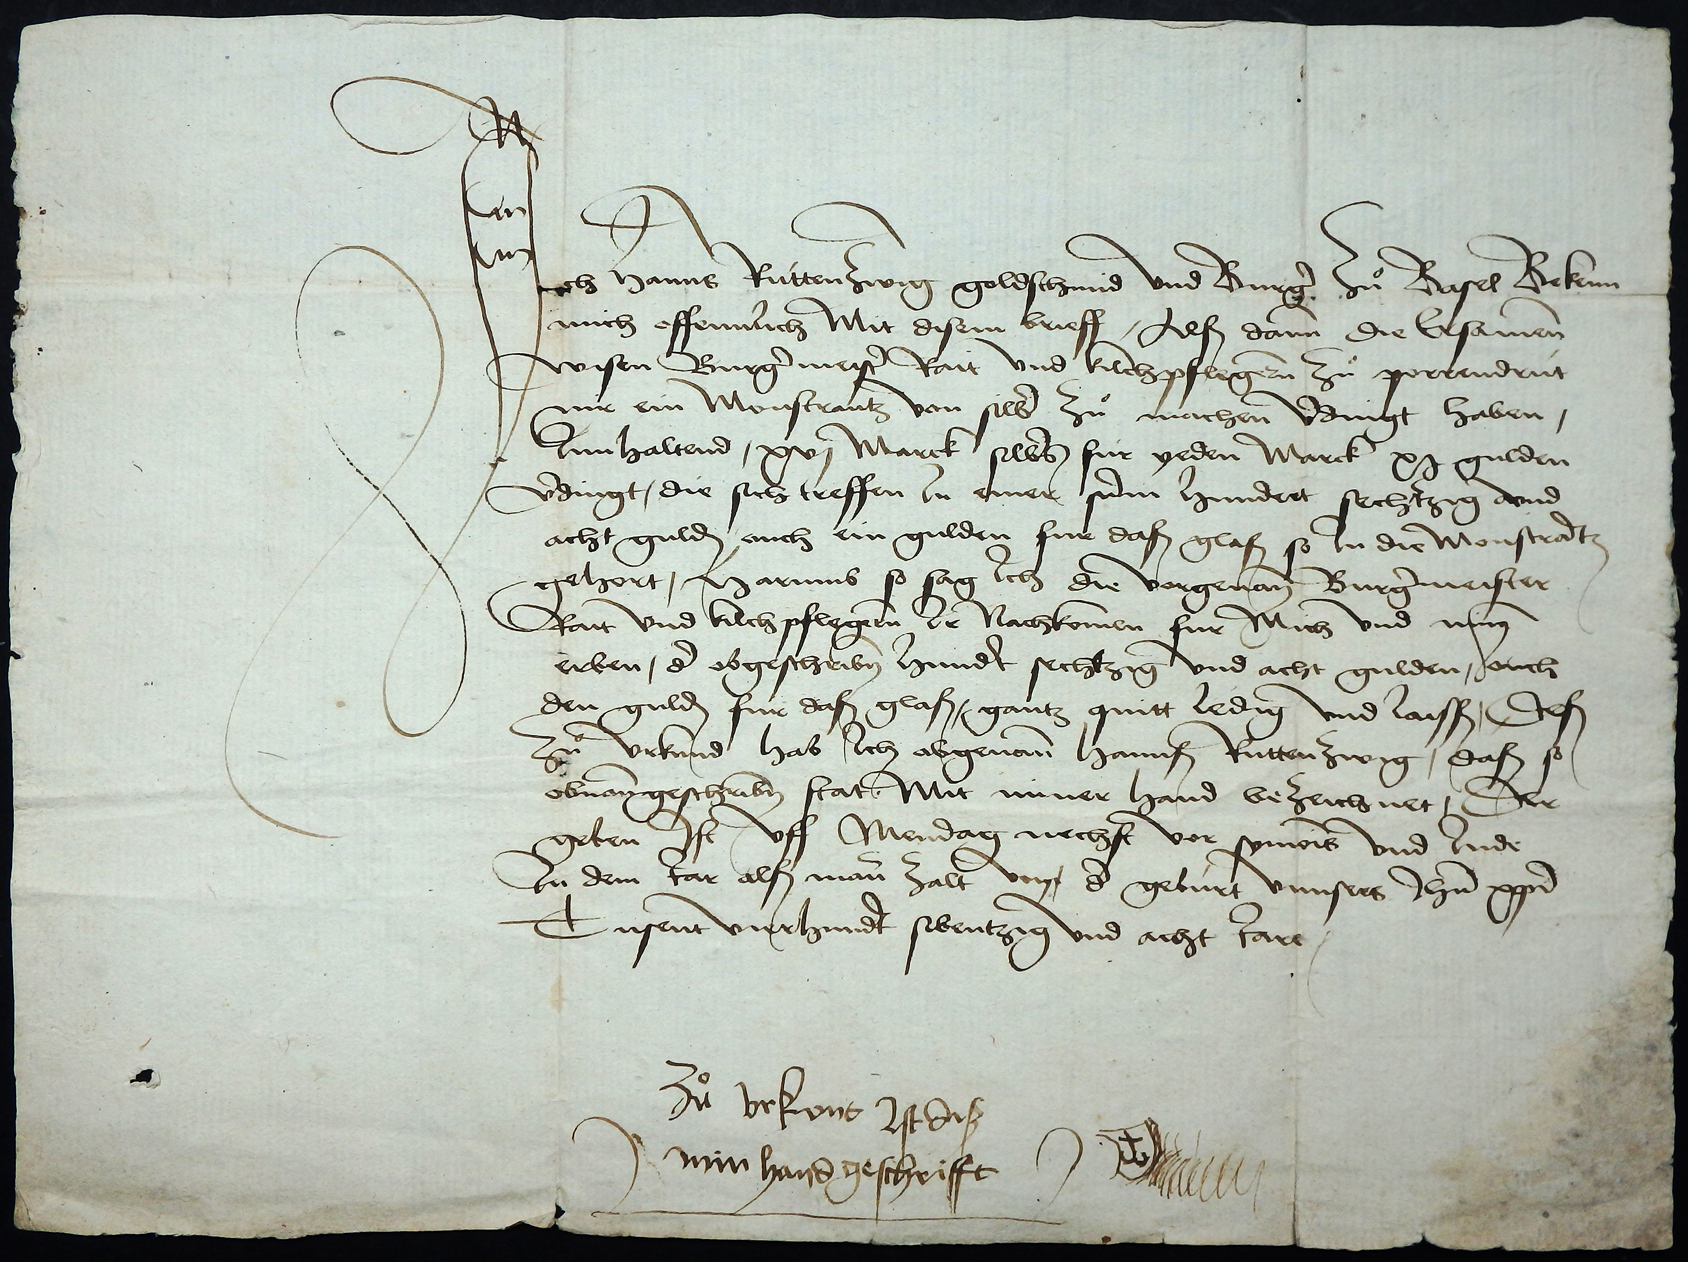 Ich Hanns Ruttenzwig goldschmid vnd Burg̃ zů Basel Bekenn
mich offennlich Mit disem brieff / Als dann die Ersamen
wisen Burg̃meist̃ Rait vnd kilchpflegern zů porrendrut
mir ein Monstrantz von silb̃ zů machen v̈dingt haben /
Innhaltend / xvj Marck silbers für yeden Marck xj gulden
v̈dingt / die sich treffen In einer sum̃ hundert sechtzig vnd
acht guld̃ / ouch ein gulden fur dasz glasz so In die Monstrãtz
gehort / Harumb so sag Ich die vorgenañ Burg̃meister
Rait vnd kilchpflegern Ir Nachkomen fur Mich vnd min
erben / d̃ obgeschribñ hund̃t sechtzig vnd acht gulden / ouch
den guld̃ fur dasz glasz / gantz quitt ledig vnd lasz / Desz
zů vrkund hab Ich obgenañ Hannsz Ruttenzwig / dasz so
obnan̄geschribñ stat Mit miner hand bezeichnet / Der
geben Ist vff Mendag nechst vor symõis vnd Jude
In dem Jar alsz mañ zalt von d̃ geburt vnnsers Jhũ xp̃i
Tusent vierhund̃t sibentzig vnd acht Jare
Zů vrkond Ist disz
min hand geschrifft